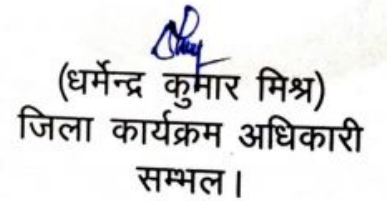 (धर्मेन्द्र कुमार मिश्र)
जिला कार्यक्रम अधिकारी
सम्भल।